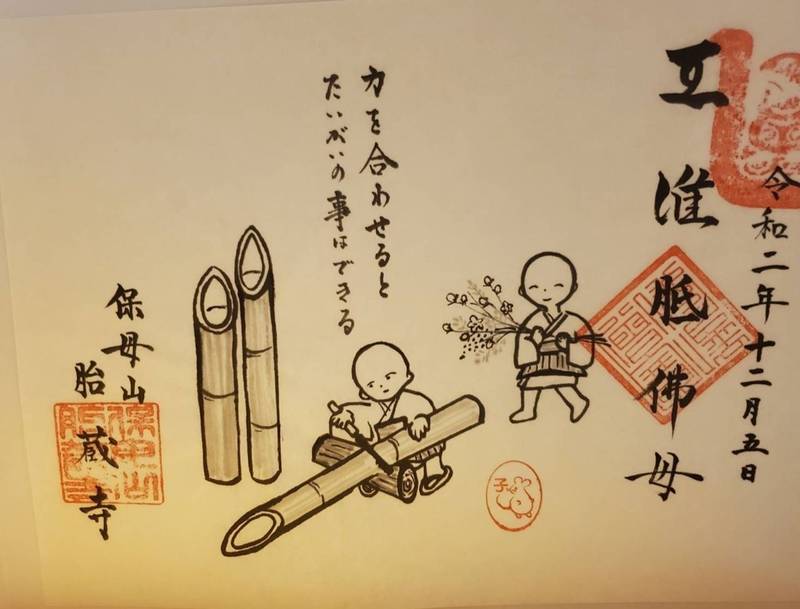 令和二年十二月五日
准胝佛母
力を合わせると
たいがいの事はできる
子
保母山
胎蔵寺